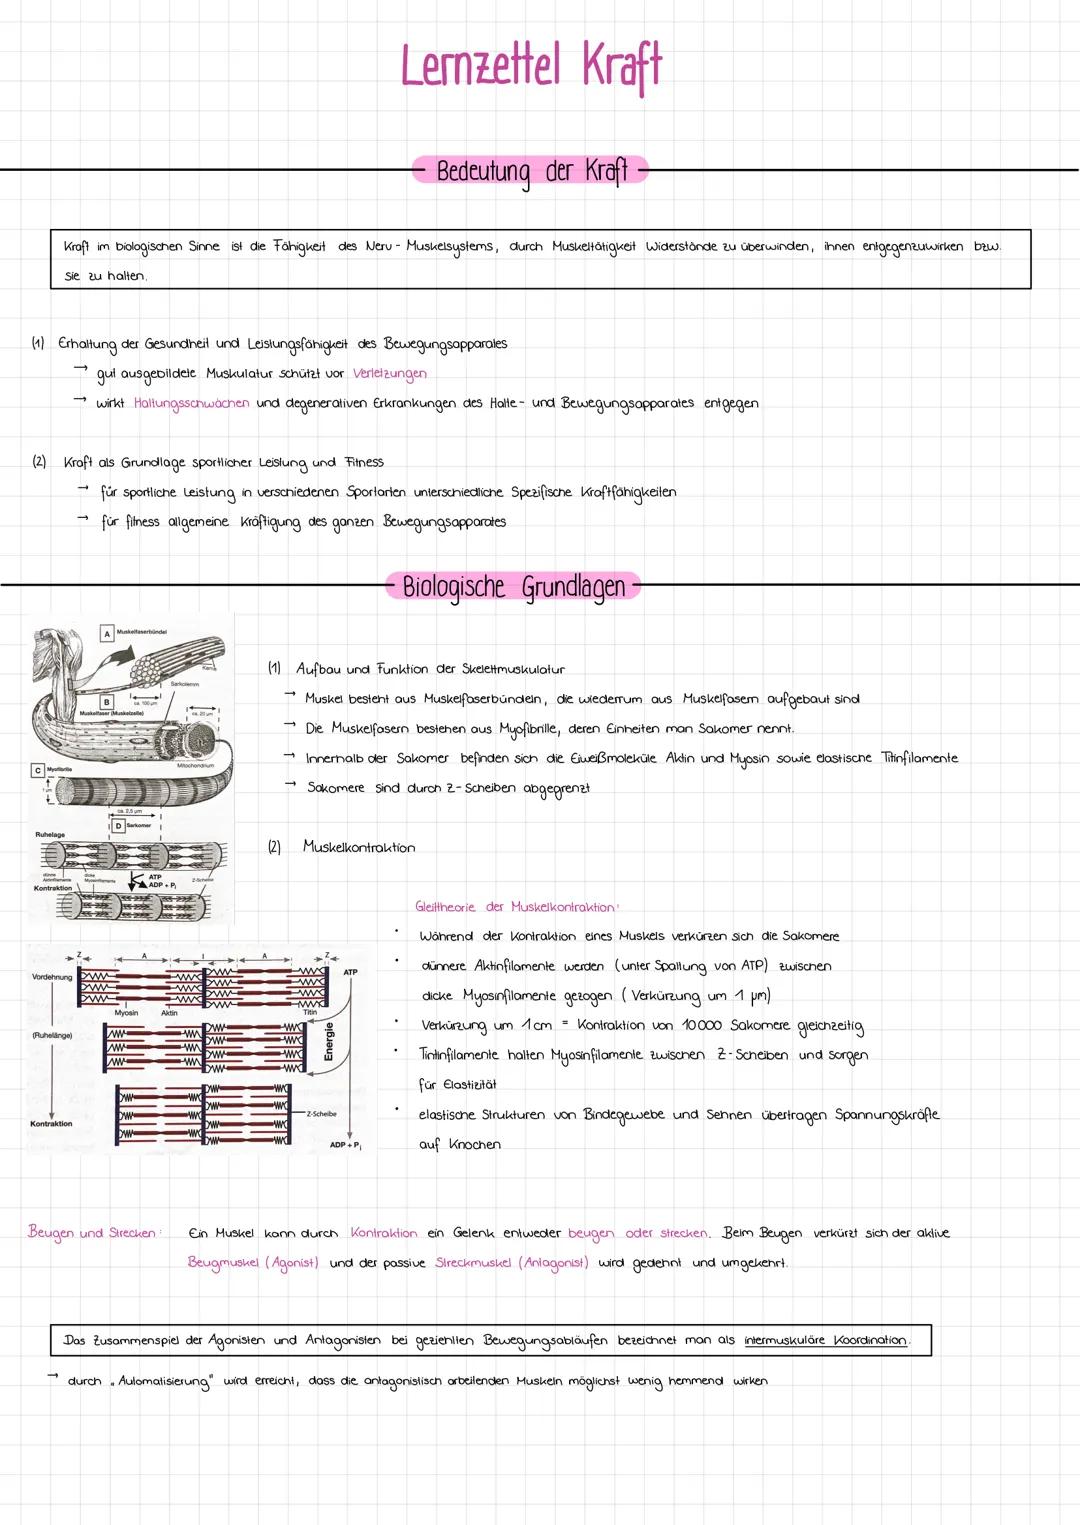 Lernzettel Kraft
Bedeutung der Kraft
Kraft im biologischen Sinne ist die Fähigkeit des Nerv - Muskelsystems, durch Muskeltätigkeit Widerstände zu überwinden, ihnen entgegenzuwirken bzw.
sie zu halten.
(1) Erhaltung der Gesundheit und Leistungsfähigkeit des Bewegungsapparates
→ gut ausgebildete Muskulatur schützt vor Verletzungen
→ wirkt Haltungsschwächen und degenerativen Erkrankungen des Halte- und Bewegungsapparates entgegen
(2) Kraft als Grundlage sportlicher Leistung und Fitness
→ für sportliche Leistung in verschiedenen Sportarten unterschiedliche Spezifische Kraftfähigkeiten
→ für fitness allgemeine Kräftigung des ganzen Bewegungsapparates
Biologische Grundlagen
A Muskelfaserbündel
Kerne
Sarkolemm
B
ca. 100 µm
ca. 20 µm
Muskelfaser (Muskelzelle)
Mitochondrium
C Myofibrille
1 µm
ca. 2,5 µm
D Sarkomer
Ruhelage
dünne Aktinfilamente
dicke Myosinfilamente
ATP
ADP + Pi
Z-Scheibe
Kontraktion
(1) Aufbau und Funktion der Skelettmuskulatur
→ Muskel besteht aus Muskelfaserbündeln, die wiederrum aus Muskelfasern aufgebaut sind
→ Die Muskelfasern bestehen aus Myofibrille, deren Einheiten man Sakomer nennt.
→ Innerhalb der Sakomer befinden sich die Eiweißmoleküle Aktin und Myosin sowie elastische Titinfilamente
→ Sakomere sind durch Z-Scheiben abgegrenzt
(2) Muskelkontraktion
Z A I A Z
Vordehnung
ATP
Myosin Aktin Titin
(Ruhelänge)
Energie
Z-Scheibe
Kontraktion
ADP + Pi
Gleittheorie der Muskelkontraktion:
• Während der Kontraktion eines Muskels verkürzen sich die Sakomere
• dünnere Aktinfilamente werden (unter Spaltung von ATP) zwischen
dicke Myosinfilamente gezogen (Verkürzung um 1 µm)
• Verkürzung um 1cm = Kontraktion von 10000 Sakomere gleichzeitig
• Tintinfilamente halten Myosinfilamente zwischen Z-Scheiben und sorgen
für Elastizität
• elastische Strukturen von Bindegewebe und Sehnen übertragen Spannungskräfte
auf Knochen
Beugen und Strecken: Ein Muskel kann durch Kontraktion ein Gelenk entweder beugen oder strecken. Beim Beugen verkürzt sich der aktive
Beugmuskel (Agonist) und der passive Streckmuskel (Antagonist) wird gedehnt und umgekehrt.
Das Zusammenspiel der Agonisten und Antagonisten bei gezielten Bewegungsabläufen bezeichnet man als intermuskuläre Koordination.
→ durch „Automatisierung" wird erreicht, dass die antagonistisch arbeitenden Muskeln möglichst wenig hemmend wirken